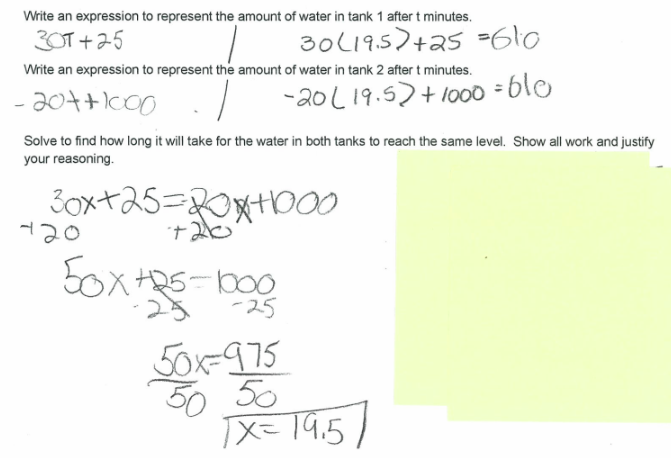 Write an expression to represent the amount of water in tank 1 after t minutes.
30T+25 / 30(19.5)+25 =610
Write an expression to represent the amount of water in tank 2 after t minutes.
-20t+1000 . / -20(19.5)+1000 =610
Solve to find how long it will take for the water in both tanks to reach the same level. Show all work and justify
your reasoning.
30x+25=20x+1000
+20 +20
50x+25=1000
-25 -25
50x=975
50 50
x=19.5